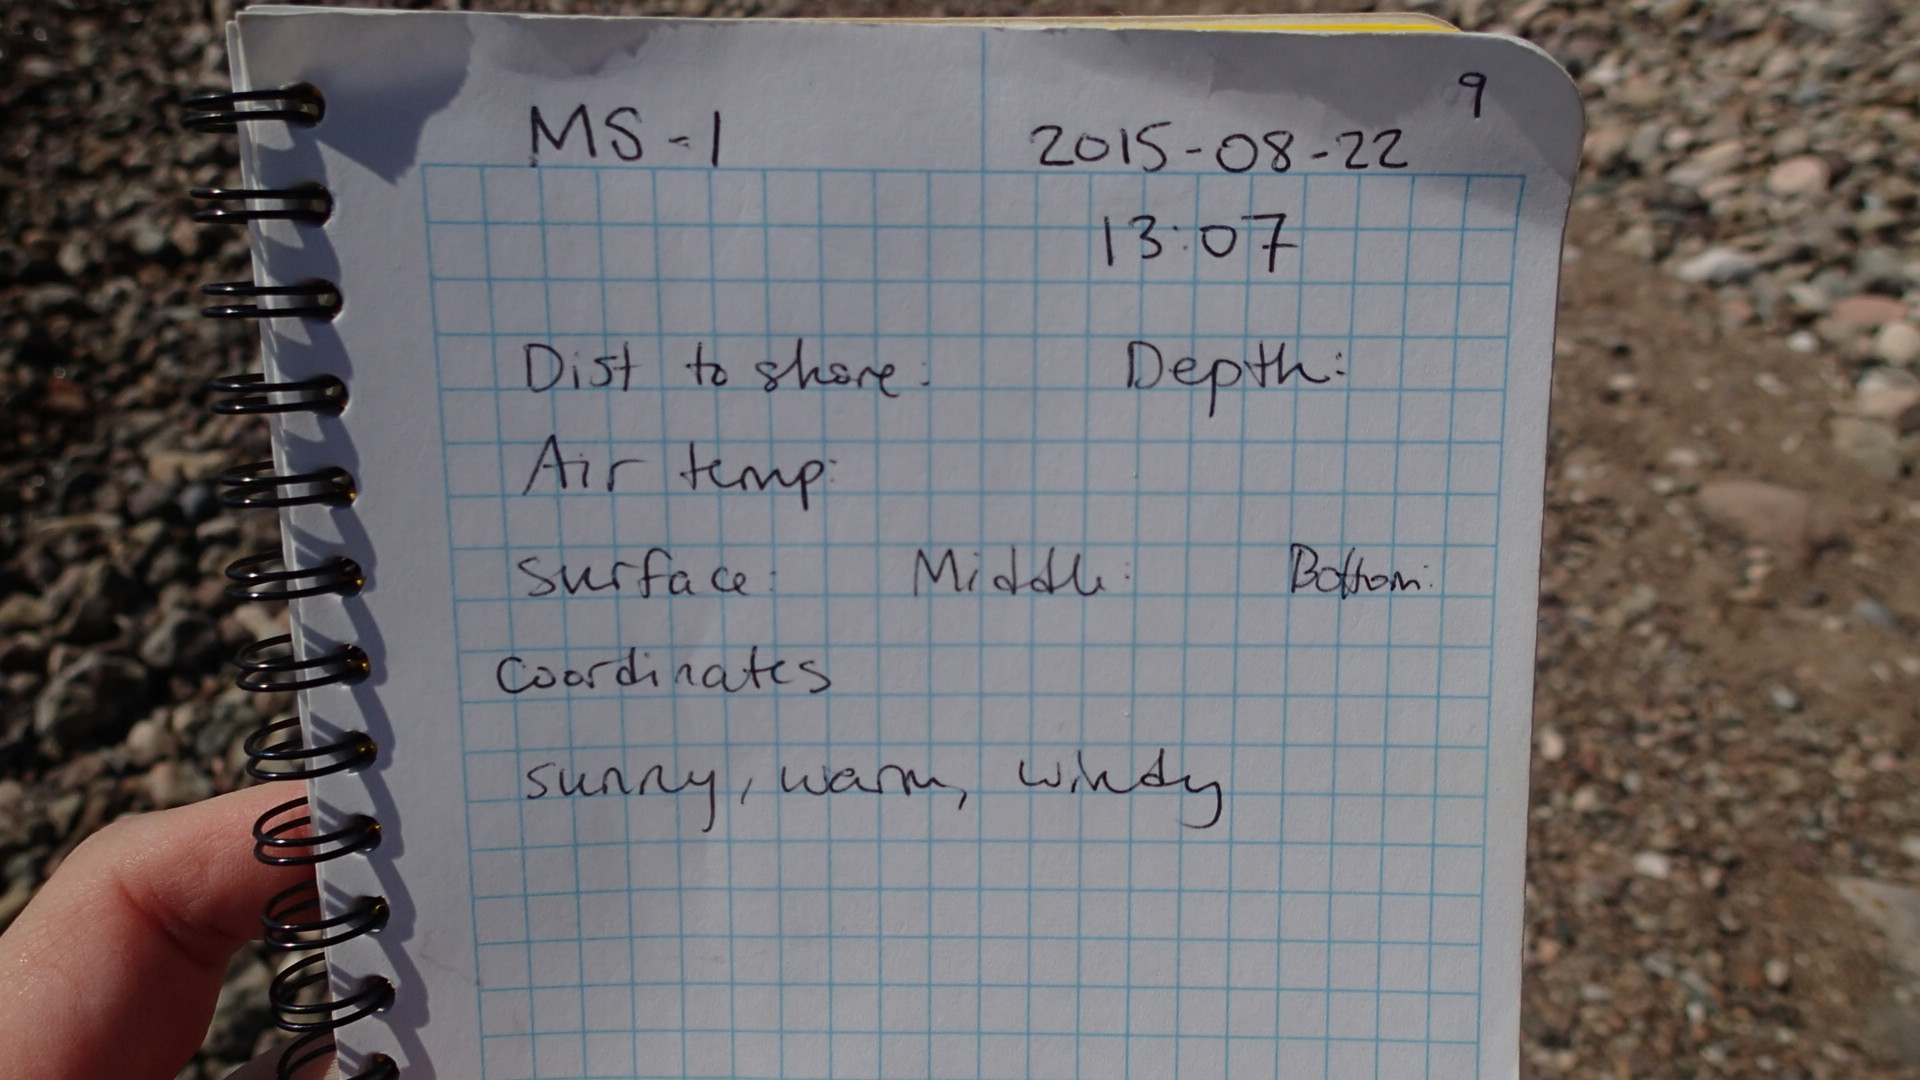 9
MS-1 2015-08-22
13:07
Dist to shore: Depth:
Air temp:
surface: Middle: Bottom:
coordinates
sunny, warm, windy